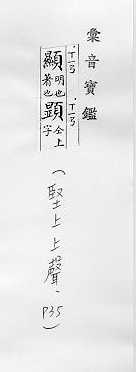 彙音寶鑑
顯明也著也
顕仝上子
（堅上上聲，P35）